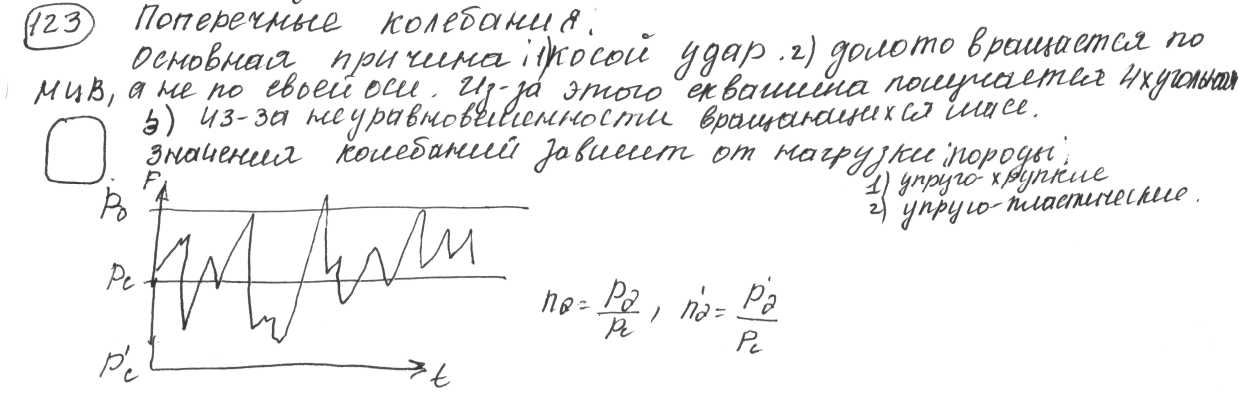 123 Поперечные колебания.
основная причина: 1) косой удар. 2) долото вращается по
МЦВ, а не по своей оси. Из-за этого скважина получается 4хугольной
3) из-за неуравновешенности вращающихся масс.
значения колебаний зависит от нагрузки, породы:
1) упруго-хрупкие
2) упруго-пластические.
P
Pд
Pс
P'с
t
nд = Pд/Pс , n'д = P'д/Pс